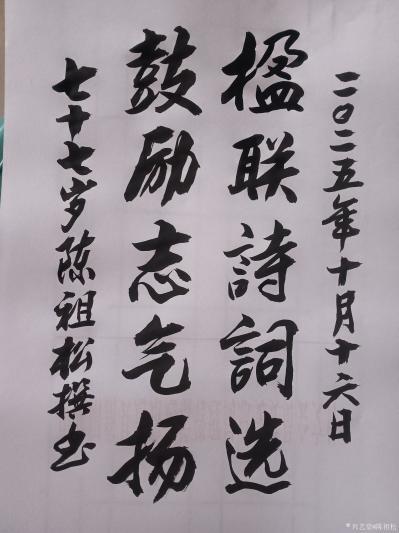 二〇二五年十月十六日
楹联詩詞选
鼓励志气扬
七十七岁陈祖松撰书